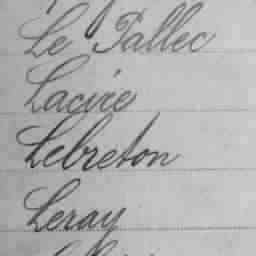 Le Pallec
Lacire
Lebreton
Leray